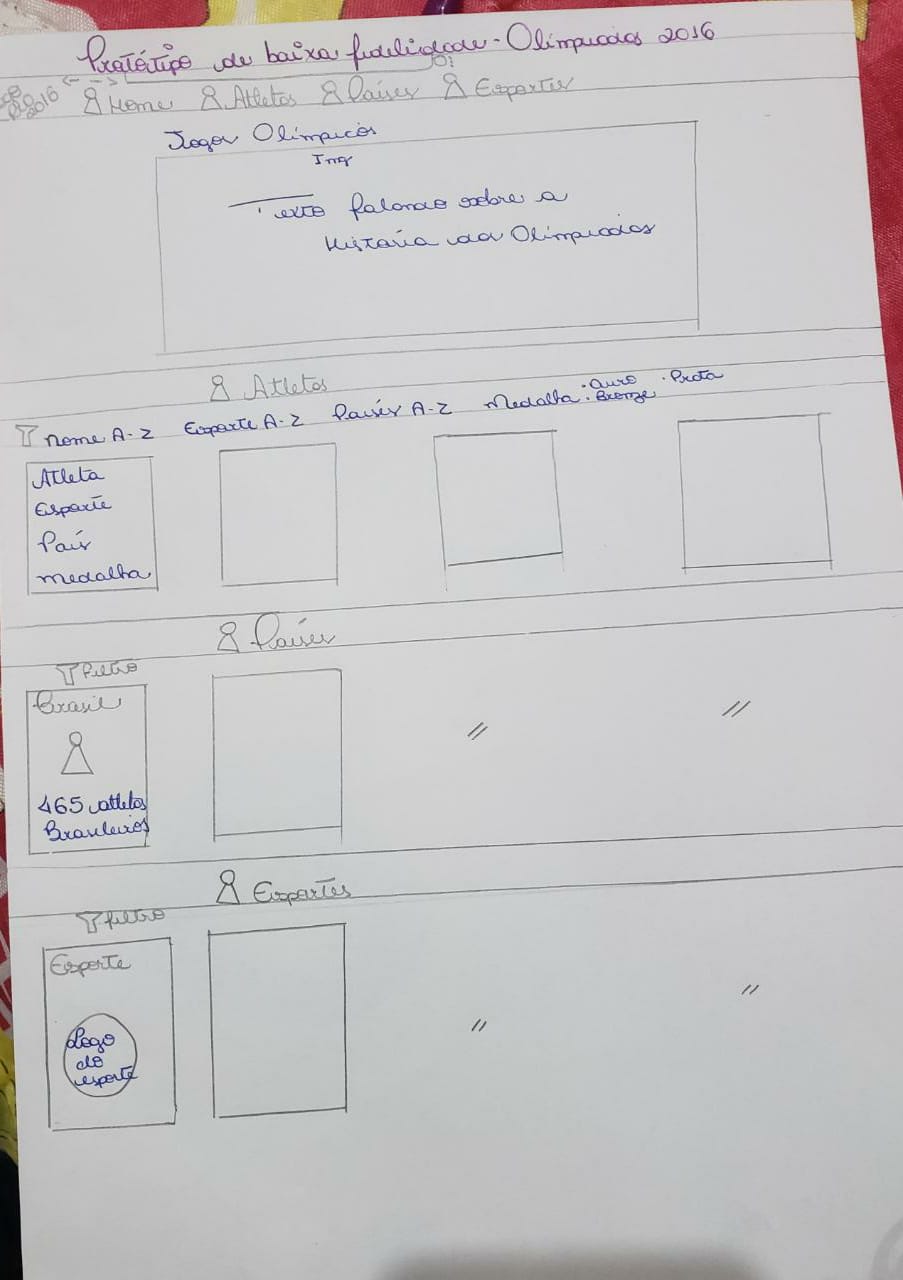 Protótipo de baixa fidelidade - Olimpíadas 2016
2016 Home Atletas Países Esportes
Jogos Olímpicos
Img
Texto falando sobre a
História das Olimpíadas
Atletas
Nome A-Z Esporte A-Z Países A-Z Medalha · Ouro · Prata
· Bronze
Atleta
Esporte
País
medalha
Países
Filtro
Brasil
465 atletas
Brasileiros
Esportes
Filtro
Esporte
Logo
do
esporte